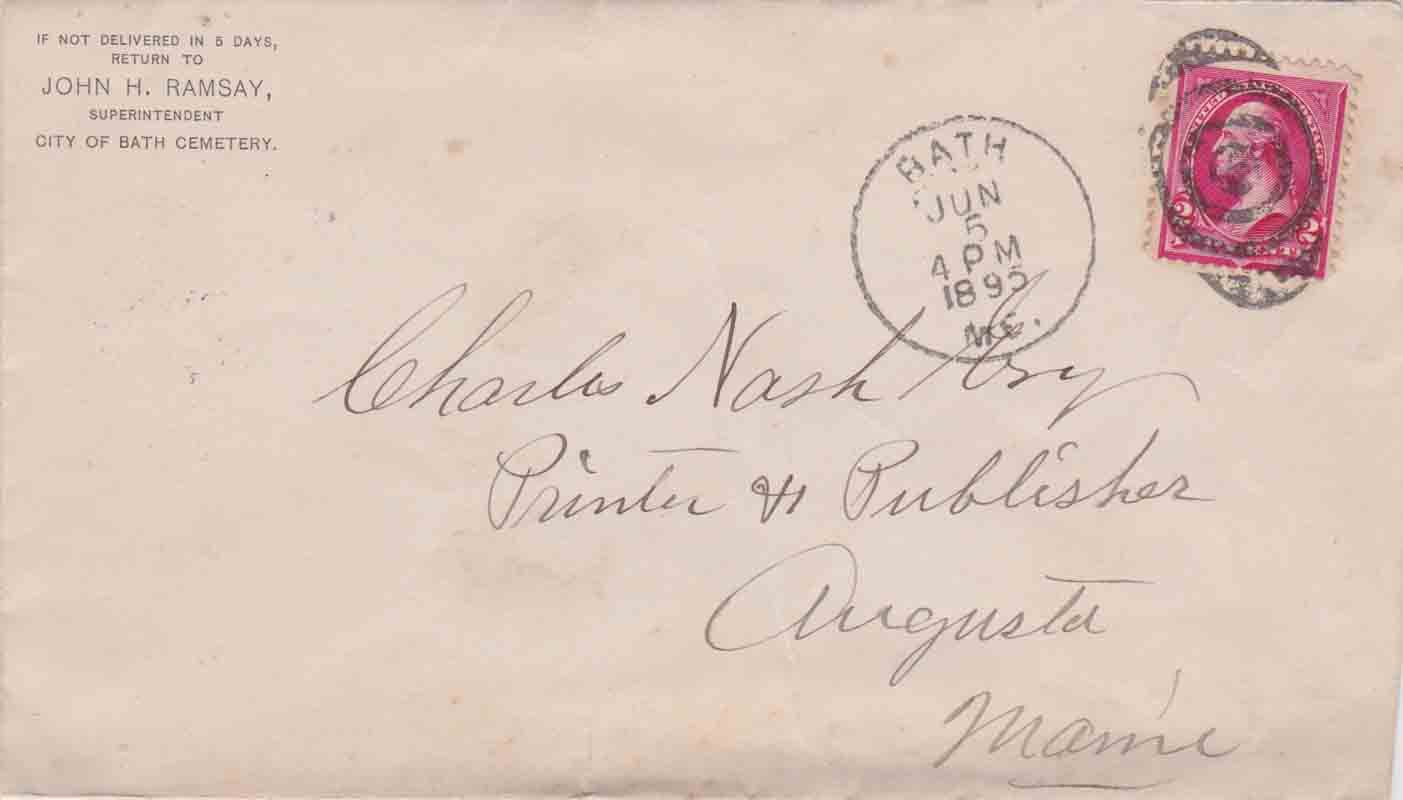 IF NOT DELIVERED IN 5 DAYS,
RETURN TO
JOHN H. RAMSAY,
SUPERINTENDENT
CITY OF BATH CEMETERY.
BATH
JUN
5
4 PM
1895
ME.
UNITED STATES POSTAGE
2 2
Charles Nash Esq
Printer & Publisher
Augusta
Maine